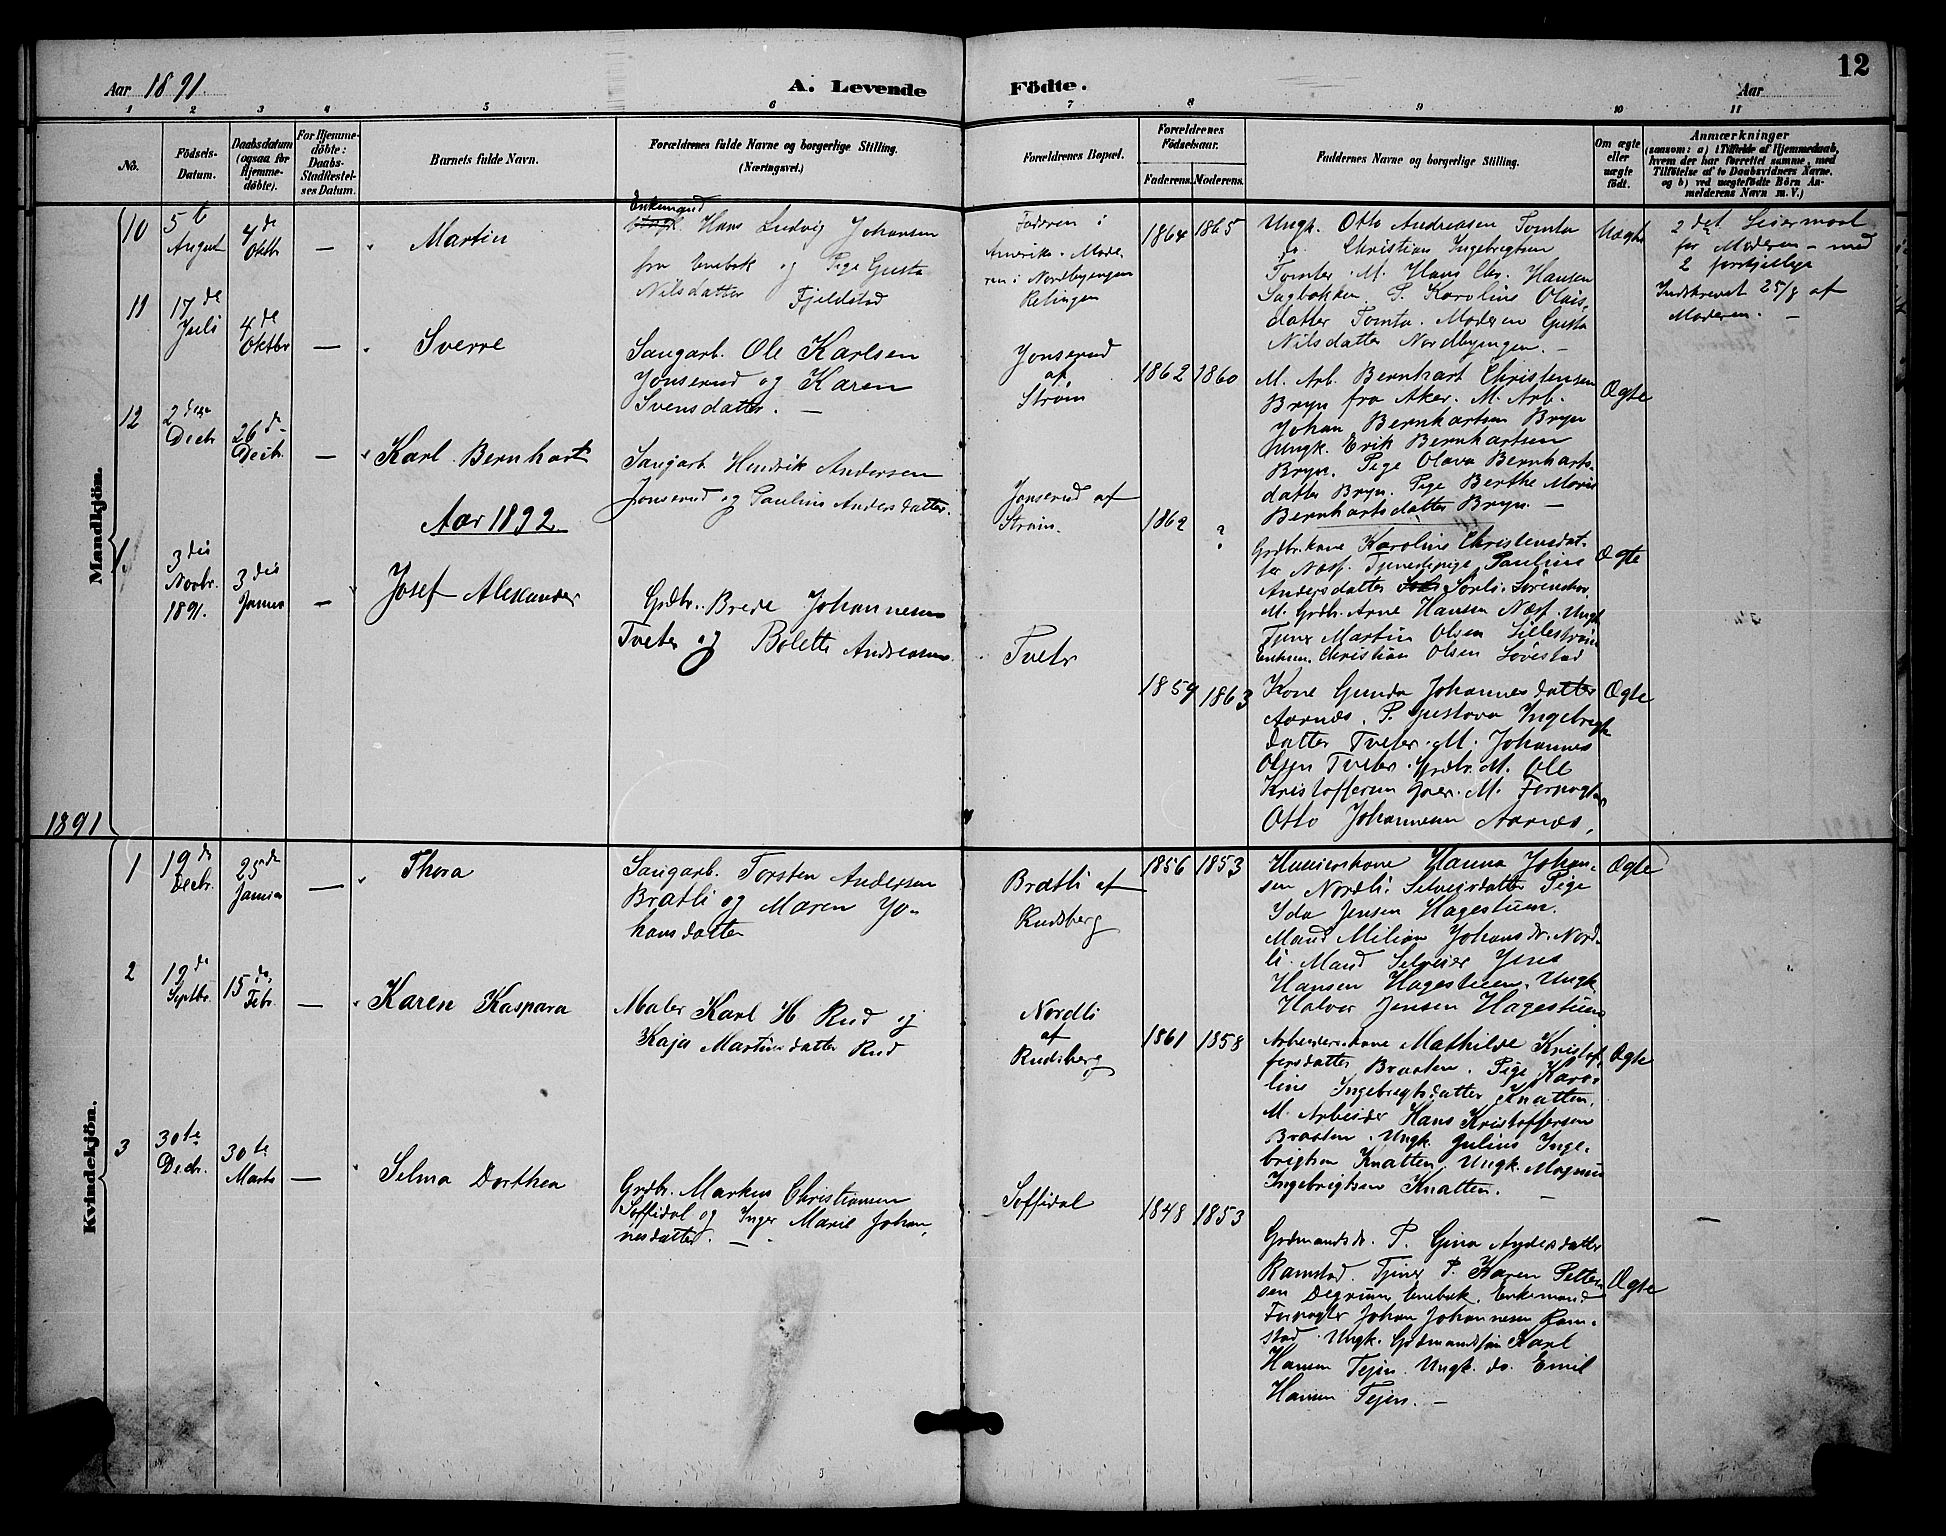 12
Aar 1891.
A. Levende
Födte.
Aar
1 2 3 4 5 6 7 8 9 10 11
No.
Födsels-
Datum.
Daabsdatum
(ogsaa for
Hjemme-
döbte).
For Hjemme-
döbte:
Daabs-
Stadfæstel-
ses Datum.
Barnets fulde Navn.
Forældrenes fulde Navne og borgerlige Stilling.
(Næringsvei.)
Forældrenes Bopæl.
Forældrenes
Födselsaar.
Faderens. Moderens.
Faddernes Navne og borgerlige Stilling.
Om ægte
eller
uægte
födt.
Anmærkninger
(saasom: a) i Tilfælde af Hjemmedaab,
hvem der har forrettet samme, med
Tilföielse af to Daabsvidners Navne.
og b) ved uægtefödte Börn An-
melderens Navn m. V.)
Mandkjön.
10
5te
August
4de
Oktbr
—
Martin
Enkemand
Hans Ludvig Johansen
fra Enebak og Pige Gusta
Nilsdatter Fjeldstad
Faderen i
Amerika. Mode-
ren i Nordbyengen
Relingen
1864
1865
Ungk. Otto Andreasen Tomta
Christian Ingebrigtsen
Tomter. M. Hans Chr. Hansen
Sagbakken. P. Karoline Olais-
datter Tomta. Moderen Gusta
Nilsdatter Nordbyengen. —
Uægte
2det Leiermaal
for Moderen – med
2 forskjellige
Indskrevet 25/8 af
Moderen. —
11
17de
Juli
4de
Oktbr
—
Sverre
Saugarb. Ole Karlsen
Jonserud og Karen
Svensdatter. —
Jonserud
af
Strøm
1862
1860
M. Arb. Bernhart Christensen
Bryn fra Aker. M. Arb.
Johan Bernhartsen Bryn
Ungk. Erik Bernhartsen
Bryn. Pige Olava Bernharts-
datter Bryn. Pige Berthe Marie
Bernhartsdatter Bryn. —
Ægte
12
2den
Decbr
26de
Decbr.
—
Karl Bernhart
Saugarb. Hendrik Andersen
Jonserud og Pauline Andersdatter.
Jonserud af
Strøm.
1862
?
Grdbr.kone Karoline Christensdat-
ter Næss. Tjenestepige Pauline
Andersdatter Sørli.
M. Grdbr. Arne Hansen Næss. Ungk.
Tjener Martin Olsen Lillestrøm
Enkem. Christian Olsen Løvestad
Ægte
Aar 1892
1.
3die
Novbr.
1891.
3die
Januar
—
Josef Alexander
Grdbr. Brede Johannesen
Tveter og Bolette Andreasen.
Tveter
1859
1863
Kone Gunda Johannesdatter
Aarnæs. P. Gustava Ingebregt-
datter Tveter. M. Johannes
Olsen Tveter. Grdbr. M. Ole
Kristoffersen M. Forpagter
Otto Johannesen Aarnæs.
Ægte
1891
Kvindekjön.
1
19de
Decbr.
25de
Januar
—
Thora
Saugarb. Torsten Andersen
Bratli og Maren Jo-
hansdatter
Bratli af
Rudsberg
1856
1853
Hanna Johan-
sen Nordli. Selveierdatter Pige
Ida Jensen Hagestuen.
Mand Milian Johans Nord-
li. Mand Selveier Jens
Hansen Hagestuen. Ungk.
Halvor Jensen Hagestuen
Ægte
2
19de
Septbr.
15de
Febr.
—
Karen Kaspara
Maler Karl H. Rud og
Kaja Martinsdatter Rud
Nordli
af
Rudsberg
1861
1858
Arbeiderkone Mathilde Kristof-
fersdatter Braaten. Pige Karo-
line Ingebrigtsdatter Knatten.
M. Arbeider Hans Kristoffersen
Braaten. Ungk. Julius Inge-
brigtsen Knatten. Ungk. Magnus
Ingebrigtsen Knatten. —
Ægte
3
30te
Decbr.
30te
Marts
—
Selma Dorthea
Grdbr. Markus Christiansen
Soffidal og Inger Marie Johan-
nesdatter. —
Soffidal
1848
1853
—
Grdmandsdr. P. Gina Andersdatter
Ramstad. Tjener P. Karen Petter-
sen Degrum Enebak. Enkemand
Forpagter Johan Johannesen Ram-
stad. Ungk. Grdmandssøn Karl
Hansen Tejen. Ungk. do. Emil
Hansen Tejen. —
Ægte